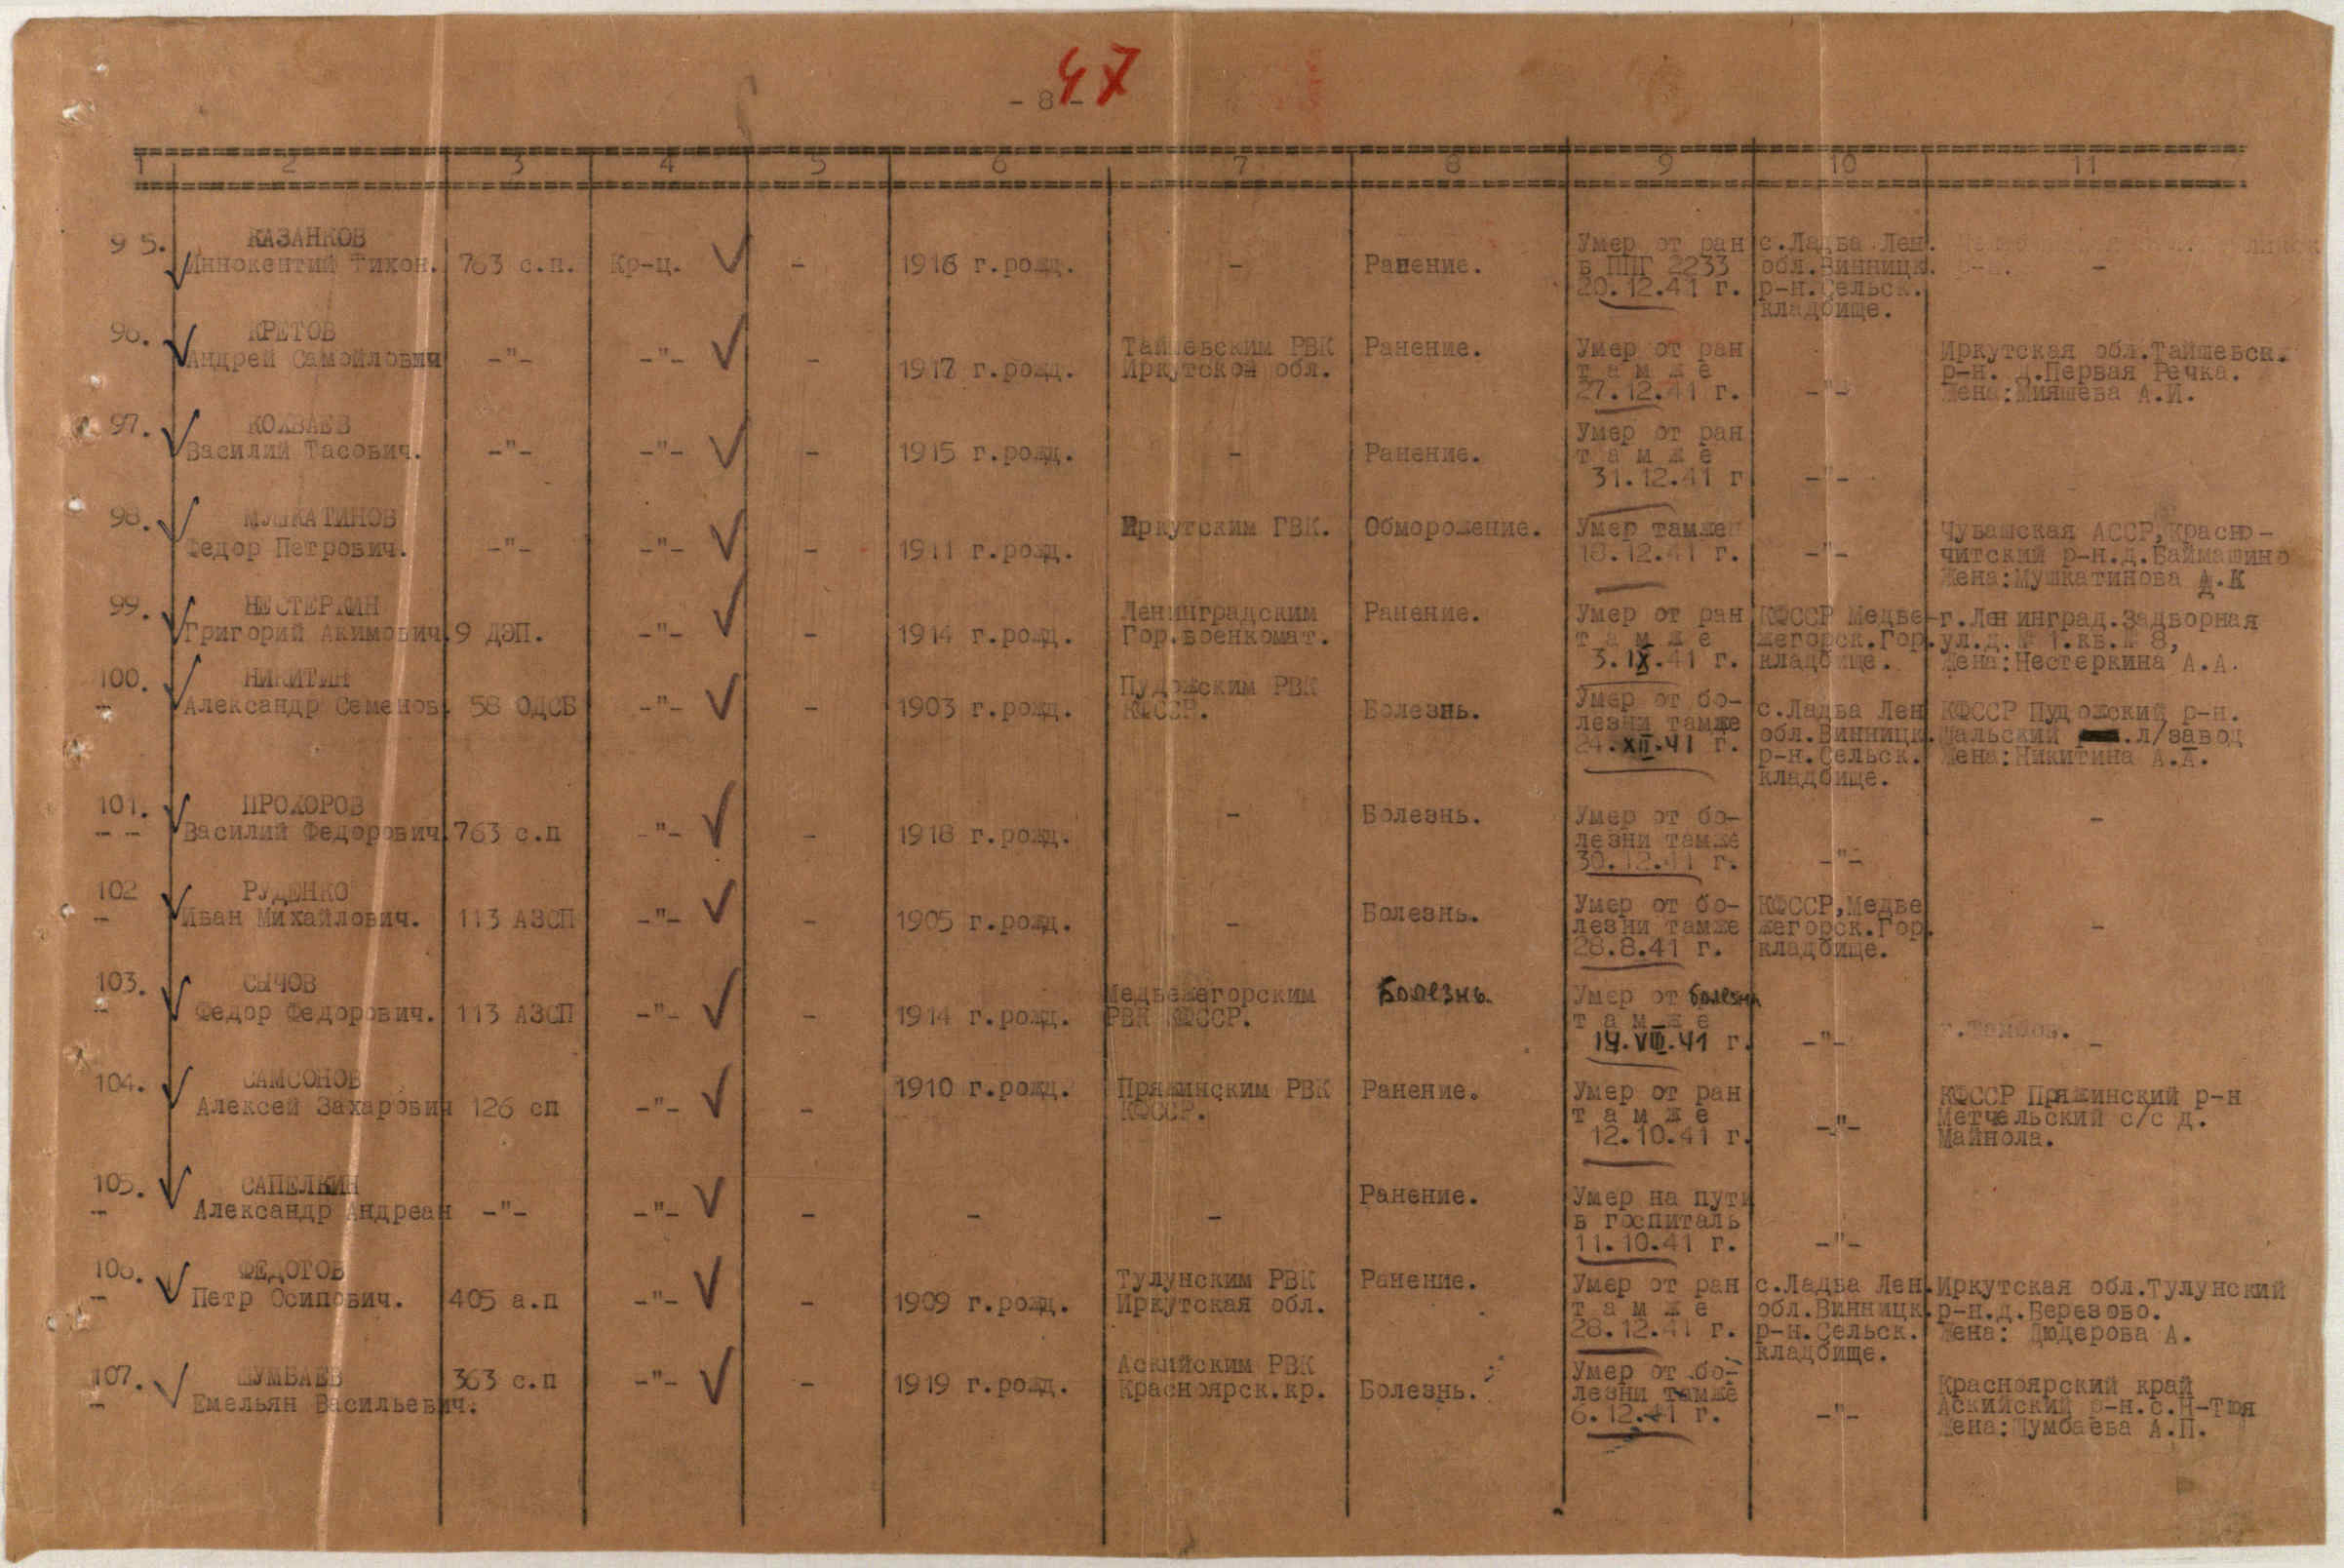 - 8 -
47
1 2 3 4 5 6 7 8 9 10 11
95. КАЗАНКОВ
Иннокентий Тихон. 763 с.п. Кр-ц. - 1916 г.рожд. - Ранение. Умер от ран в ППГ 2233 20.12.41 г. с.Ладва Лен. обл.Винницк. р-н.Сельск. кладбище. -
96. КРЕТОВ
Андрей Самойлович -"- -"- - 1917 г.рожд. Тайшевским РВК Иркутской обл. Ранение. Умер от ран т а м ж е 27.12.41 г. -"- Иркутская обл.Тайшевск. р-н. д.Первая Речка. Жена:Мияшева А.И.
97. КОЖВАЕВ
Василий Тасович. -"- -"- - 1915 г.рожд. - Ранение. Умер от ран т а м ж е 31.12.41 г -"-
98. МУШКАТИНОВ
Федор Петрович. -"- -"- - 1911 г.рожд. Иркутским ГВК. Обморожение. Умер тамже 18.12.41 г. -"- Чувашская АССР,Красно- читский р-н.д.Баймашино Жена:Мушкатинова А.К
99. НЕСТЕРКИН
Григорий Акимович. 9 ДЭП. -"- - 1914 г.рожд. Ленинградским Гор.военкомат. Ранение. Умер от ран т а м ж е 3.IX.41 г. КФССР Медве- жегорск.Гор. кладбище. г.Ленинград.Задворная ул.д.№ 1.кв.№ 8, Жена:Нестеркина А.А.
100. НИКИТИН
Александр Семенов. 58 ОДСБ -"- - 1903 г.рожд. Пудожским РВК КФССР. Болезнь. Умер от бо- лезни тамже 24.XII.41 г. с.Ладва Лен обл.Винницк. р-н.Сельск. кладбище. КФССР Пудожский р-н. Шальский л/завод Жена:Никитина А.А.
101. ПРОХОРОВ
Василий Федорович. 763 с.п -"- - 1918 г.рожд. - Болезнь. Умер от бо- лезни тамже 30.12.41 г. -"- -
102 РУДЕНКО
Иван Михайлович. 113 АЗСП -"- - 1905 г.рожд. - Болезнь. Умер от бо- лезни тамже 28.8.41 г. КФССР,Медве жегорск.Гор. кладбище. -
103. СЫЧОВ
Федор Федорович. 113 АЗСП -"- - 1914 г.рожд. Медвежегорским РВК КФССР. Болезнь. Умер от болезни т а м ж е 14.VIII.41 г. -"- г.Тамбов. -
104. САМСОНОВ
Алексей Захарович 126 сп -"- - 1910 г.рожд. Пряжинским РВК КФССР. Ранение. Умер от ран т а м ж е 12.10.41 г. -"- КФССР Пряжинский р-н Метчельский с/с д. Майнола.
105. САПЕЛКИН
Александр Андреан -"- -"- - - - Ранение. Умер на пути в госпиталь 11.10.41 г. -"-
106. ФЕДОТОВ
Петр Осипович. 405 а.п -"- - 1909 г.рожд. Тулунским РВК Иркутская обл. Ранение. Умер от ран т а м ж е 28.12.41 г. с.Ладва Лен. обл.Винницк. р-н.Сельск. кладбище. Иркутская обл.Тулунский р-н.д.Березово. Жена: Дюдерова А.
107. ШУМБАЕВ
Емельян Васильевич. 363 с.п -"- - 1919 г.рожд. Аскийским РВК Красноярск.кр. Болезнь. Умер от бо- лезни тамже 6.12.41 г. -"- Красноярский край Аскийский р-н.с.Н-Тюя Жена:Шумбаева А.П.